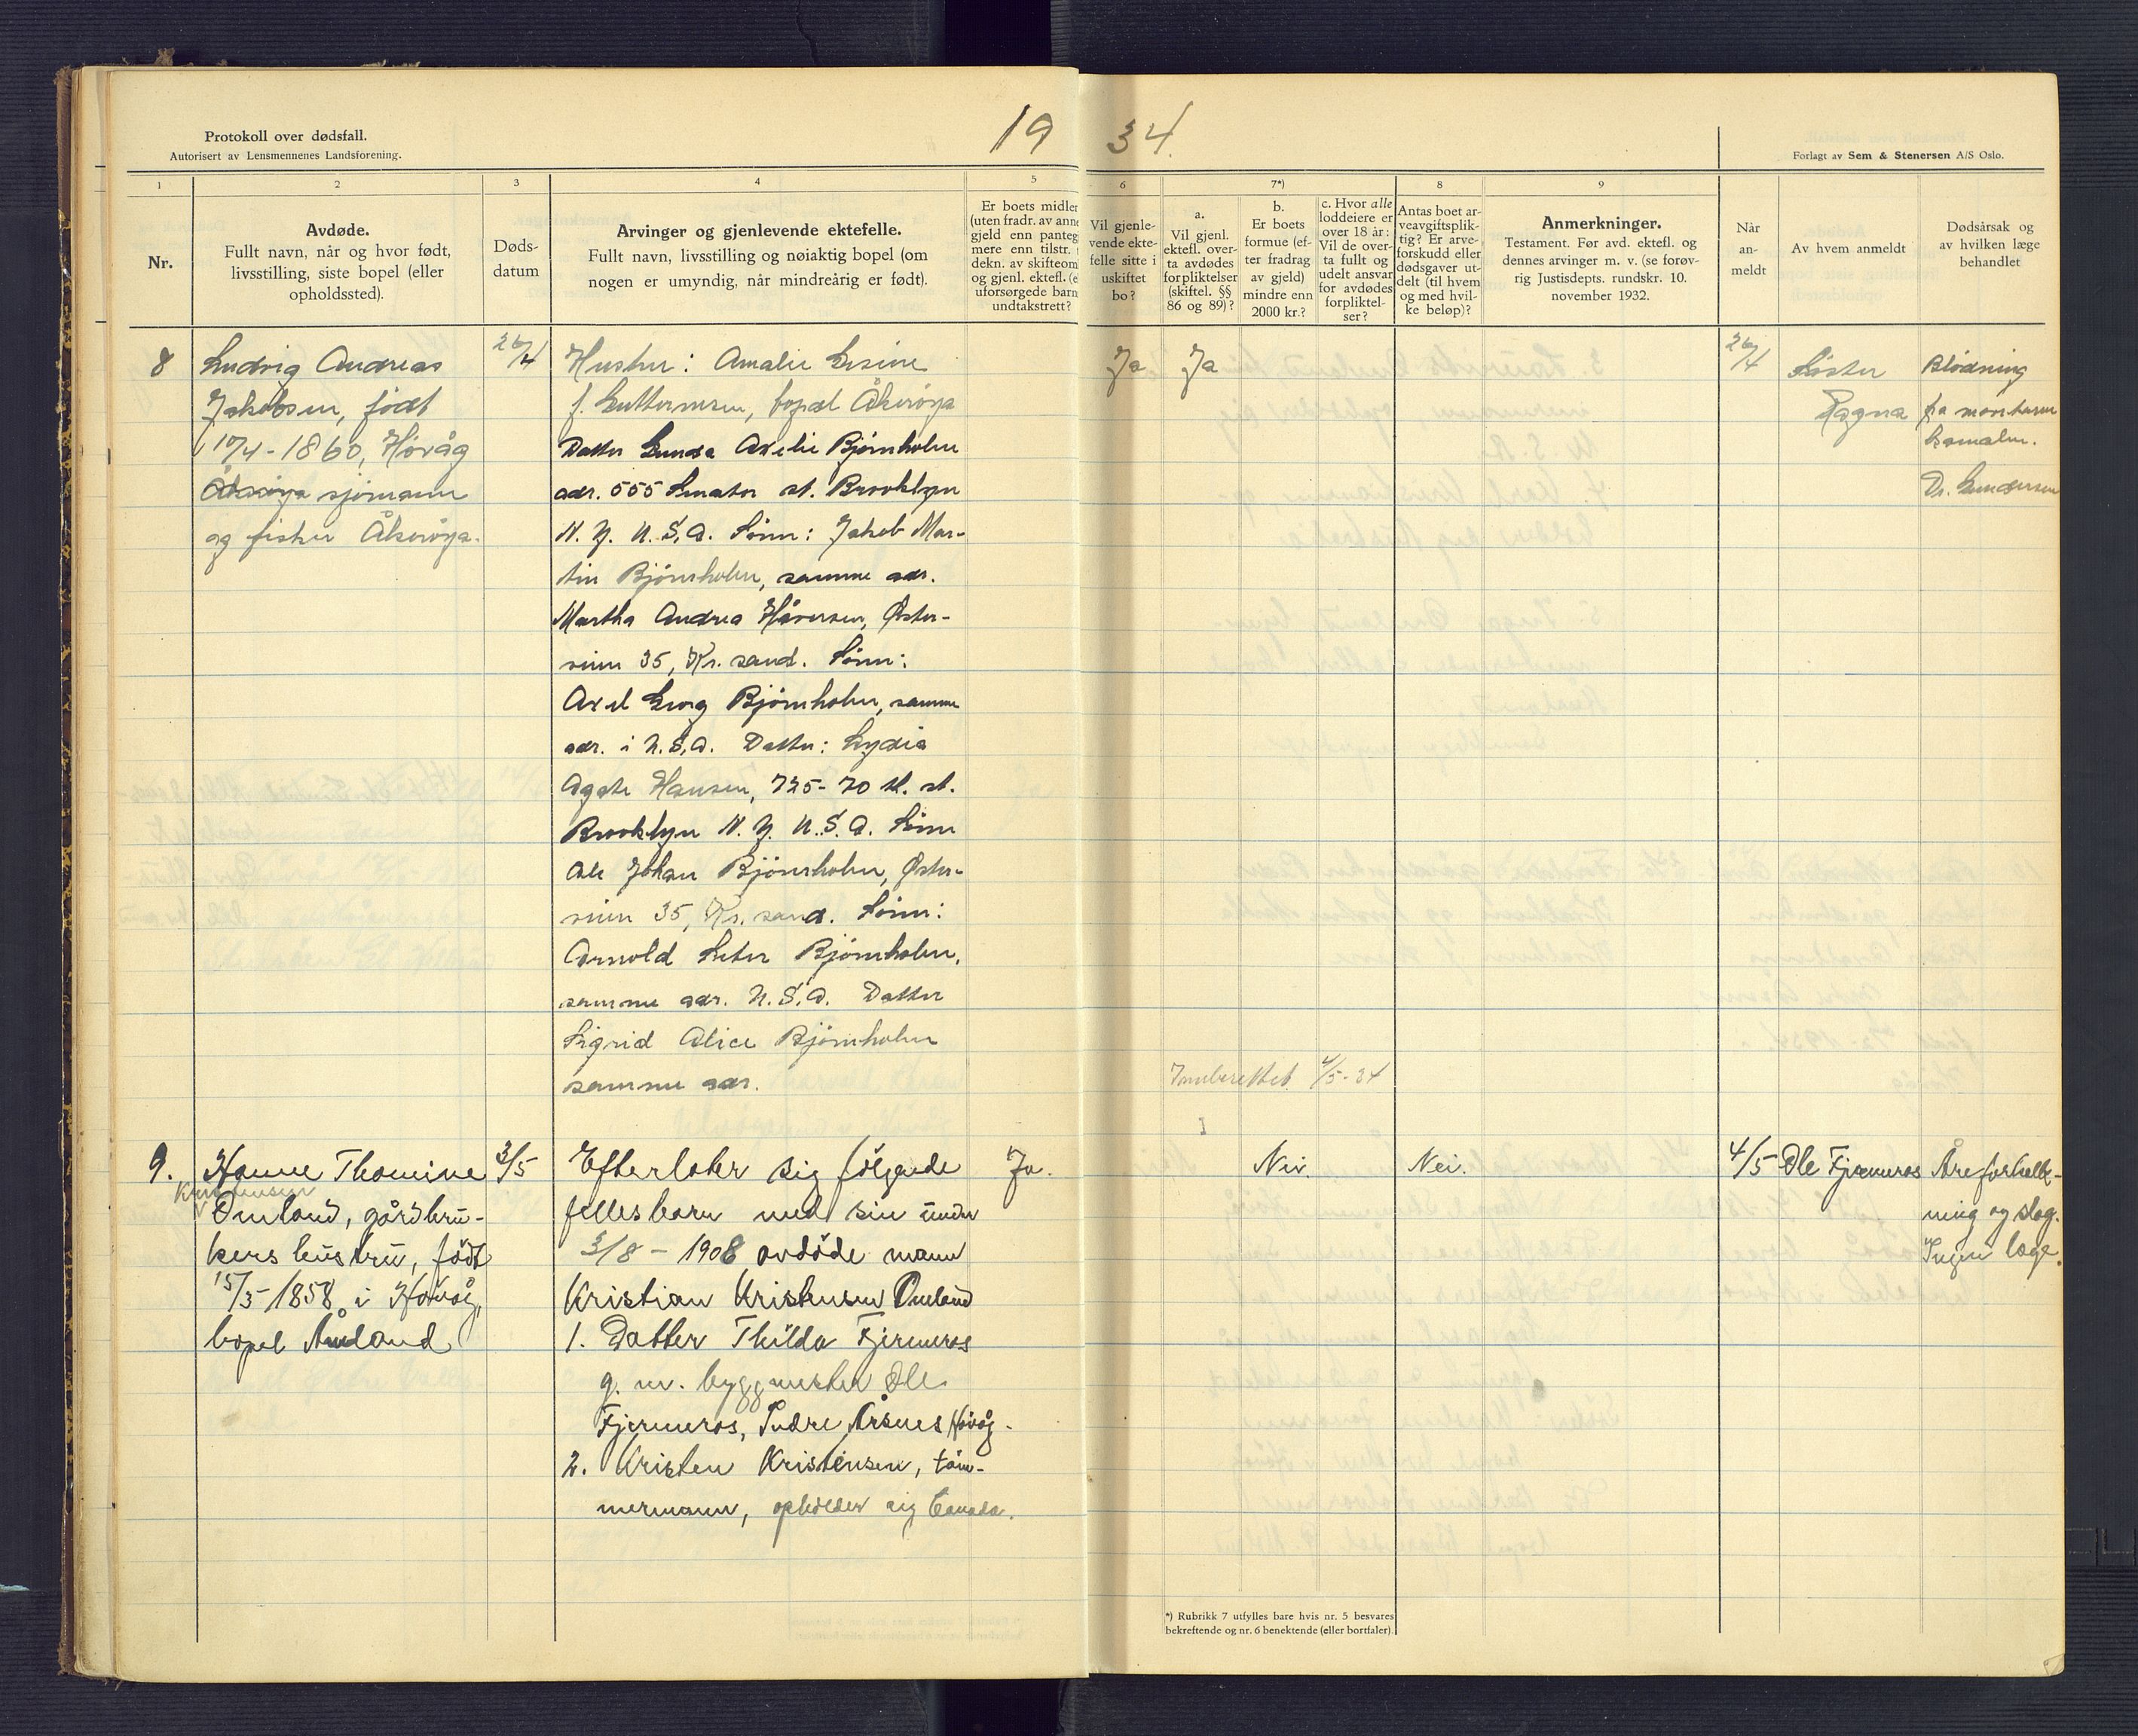 Protokoll over dødsfall.
Autorisert av Lensmennenes Landsforening.
19 34.
Forlagt av Sem & Stenersen A/S Oslo.
1
2
3
4
5
6
7*)
8
9
Nr.
Avdøde.
Fullt navn, når og hvor født,
livsstilling, siste bopel (eller
opholdssted).
Døds-
datum
Arvinger og gjenlevende ektefelle.
Fullt navn, livsstilling og nøiaktig bopel (om
nogen er umyndig, når mindreårig er født).
Er boets midler
(uten fradr. av anne
gjeld enn panteg
mere enn tilstr.
dekn. av skifteom
og gjenl. ektefl. (e
uforsørgede barn
undtakstrett?
Vil gjenle-
vende ekte-
felle sitte i
uskiftet
bo?
a.
Vil gjenl.
ektefl. over-
ta avdødes
forpliktelser
(skiftel. §§
86 og 89)?
b.
Er boets
formue (ef-
ter fradrag
av gjeld)
mindre enn
2000 kr.?
c. Hvor alle
loddeiere er
over 18 år:
Vil de over-
ta fullt og
udelt ansvar
for avdødes
forpliktel-
ser?
Antas boet ar-
veavgiftsplik-
tig? Er arve-
forskudd eller
dødsgaver ut-
delt (til hvem
og med hvil-
ke beløp)?
Anmerkninger.
Testament. Før avd. ektefl. og
dennes arvinger m. v. (se forøv-
rig Justisdepts. rundskr. 10.
november 1932.
Når
an-
meldt
Av hvem anmeldt
Dødsårsak og
av hvilken læge
behandlet
8
Ludvig Andreas
Jakobsen, født
10/4-1860, Høvåg
sjømann
og fisker Åkerøya.
26/4
Hustru: Amalie
f. Guttormsen, bopæl Åkerøya
Datter Gunda Axelie Bjørnholm
adr. 555 Senator st. Brooklyn
N. Y. U.S.A. Sønn: Jakob Mar-
tin Bjørnholm, samme adr.
Martha Andrea Håversen, Øster-
veien 35, Kr. sand. Sønn:
Axel Georg Bjørnholm, samme
adr. i U.S.A. Datter: Lydia
Agate Hansen, 725-70 th. st.
Brooklyn N. Y. U.S.A. Sønn
Ole Johan Bjørnholm, Øster-
veien 35, Kr. sand. Sønn:
Arnold Peter Bjørnholm,
samme adr. U.S.A. Datter
Sigrid Alice Bjørnholm
samme adr.
Ja
Ja
Innberettet 4/5-34
26/4
Søster
Ragna
Blødning
fra
Dr. Gundersen
9.
Hanne Thomine
Kristensen
Omland, gårdbru-
kers hustru, født
15/3-1858 i Høvåg,
bopel Åmland
3/5
Efterlater sig følgende
felles barn med sin under
3/8-1908 avdøde mann
Kristian Kristensen Omland
1. Datter Thilda Fjermeros
g. m. byggmester Ole
Fjermeros, Indre Årsnes Høvåg.
2. Kristen Kristensen, tøm-
mermann, opholder sig Canada.
Ja.
Nei.
Nei.
4/5
Ole Fjermeros
Åreforkalk-
ning og slag.
Ingen læge.
*) Rubrikk 7 utfylles bare hvis nr. 5 besvares
bekreftende og nr. 6 benektende (eller bortfaler).